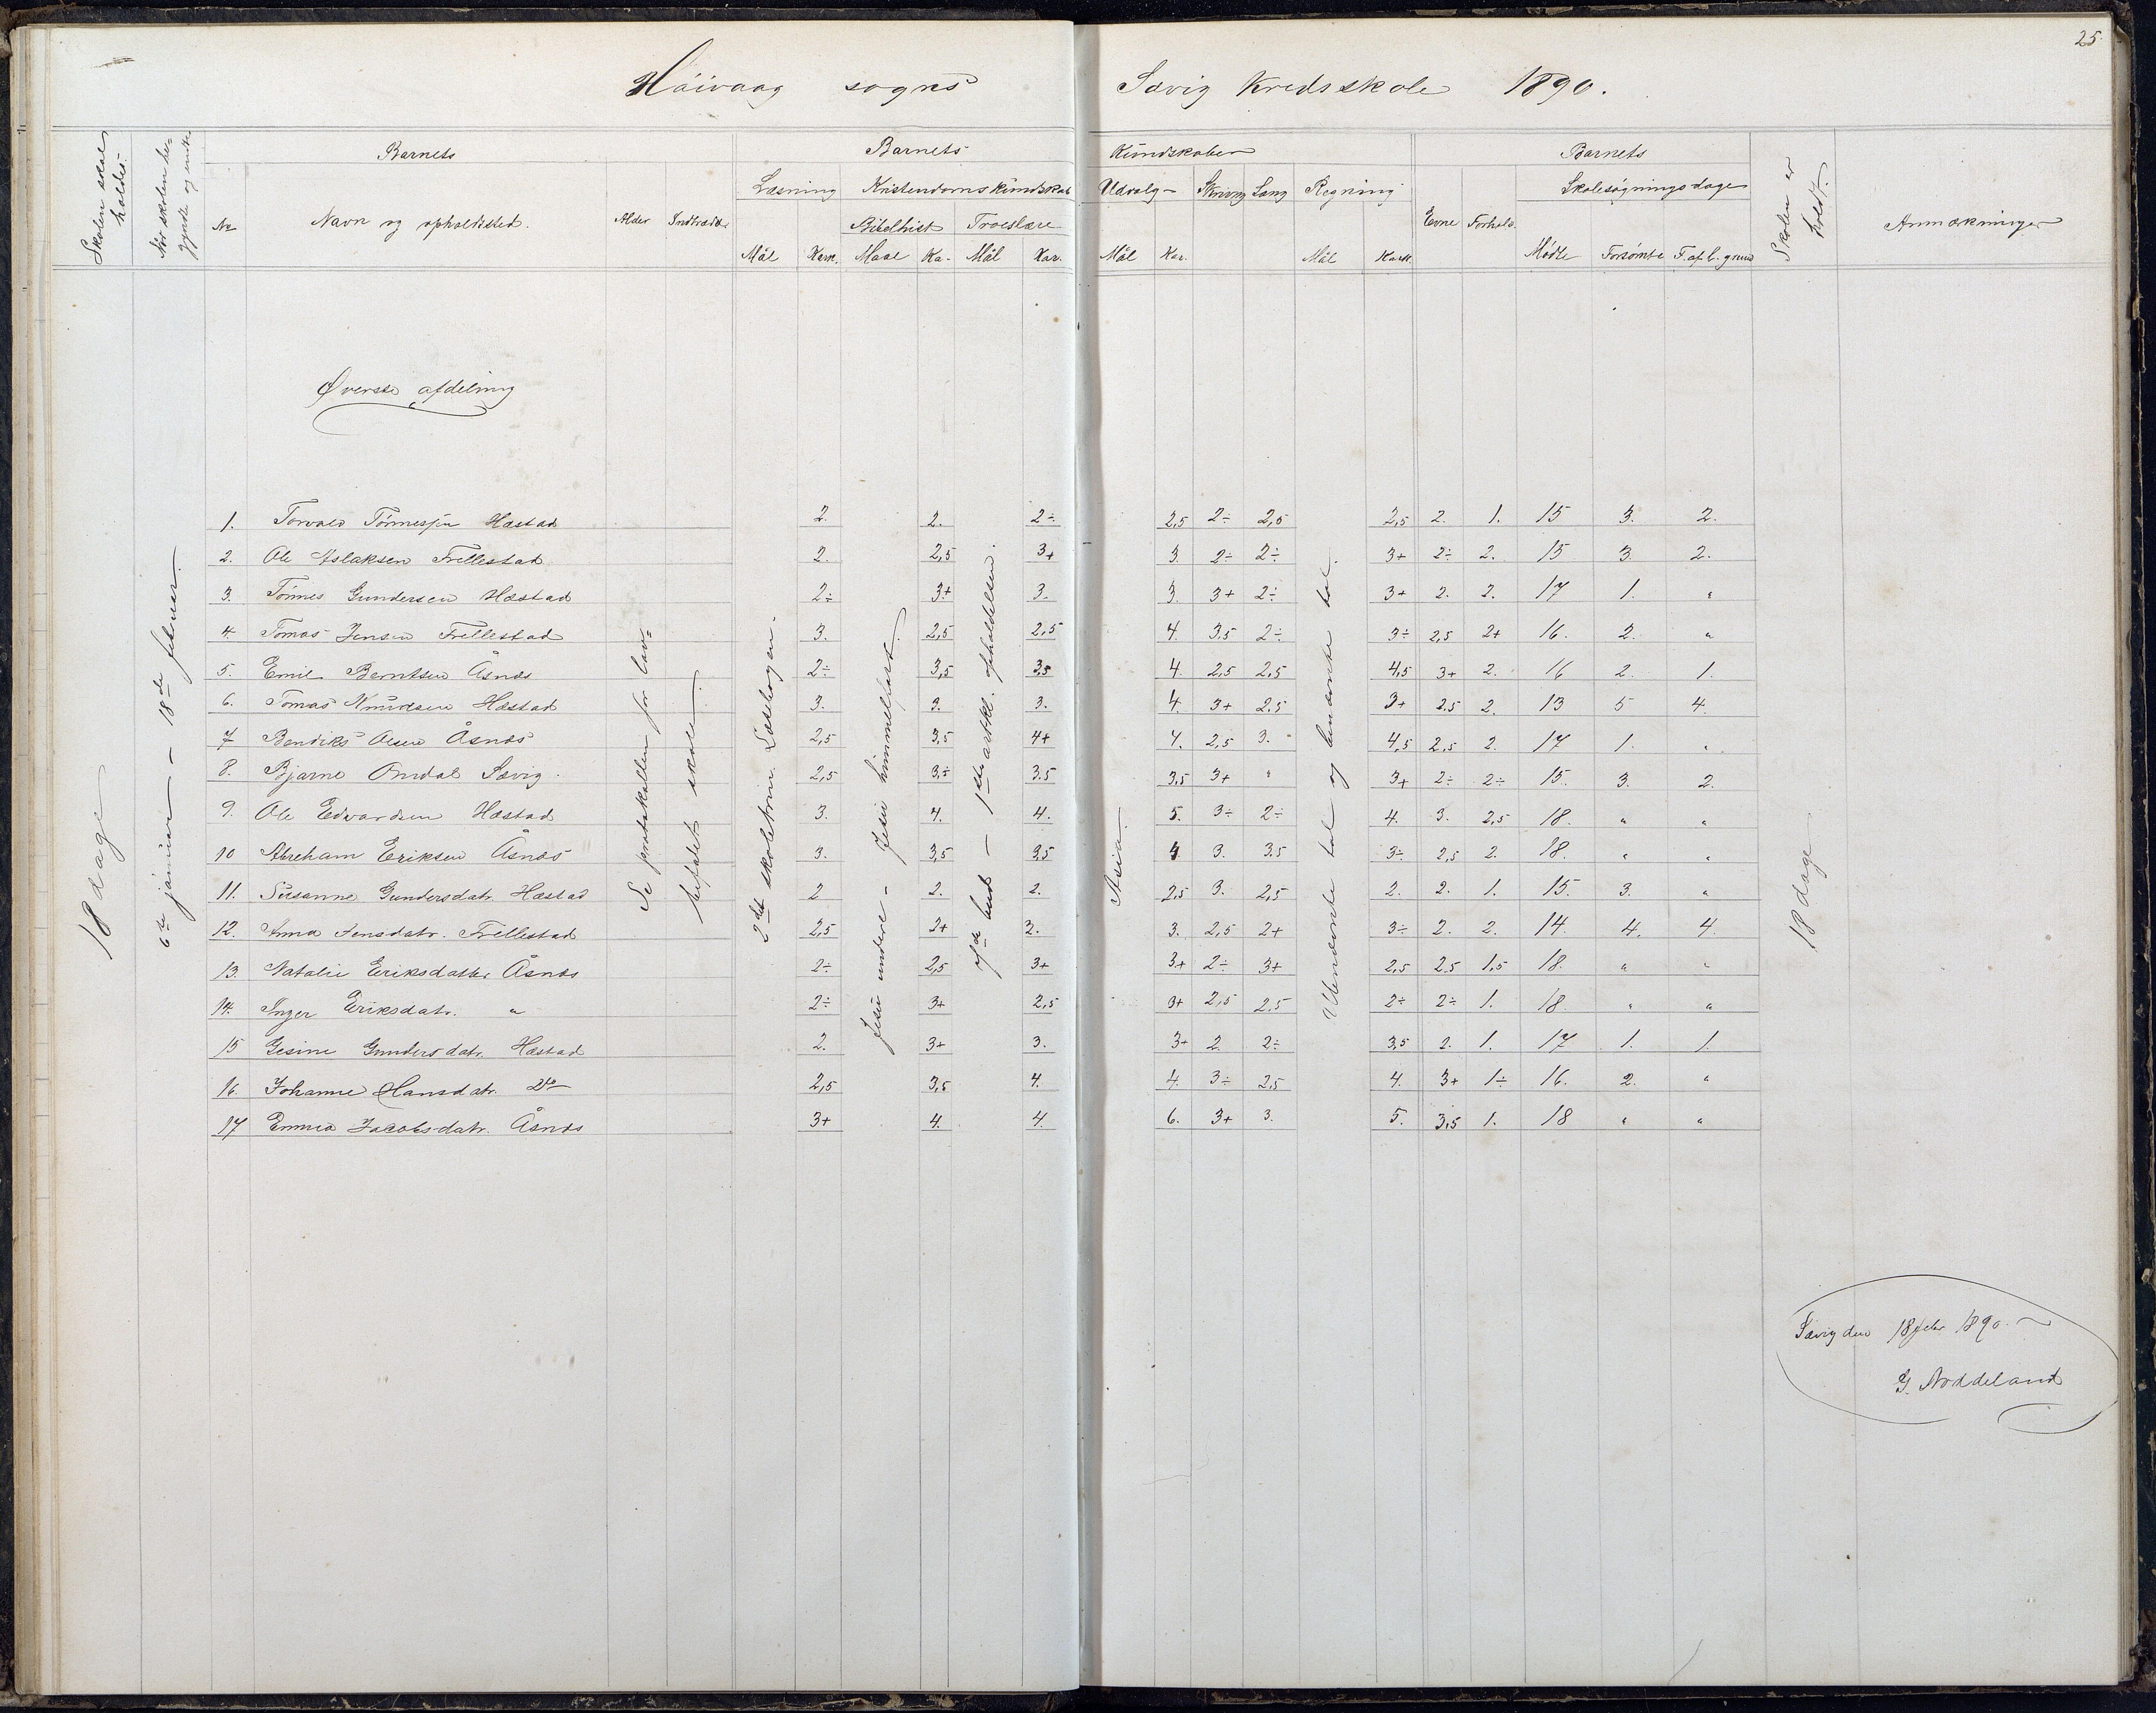 25.
Høivaag sogns Sævig Kredsskole 1890.
Skolen skal holdes.
Når skolen begynte og endte
Barnets Barnets Kundskaber Barnets
Skolen er holdt.
Læsning Kristendomskundskab Udvalg Skrivng Sang Regning Skolesøgningsdage
No Navn og opholdssted. Alder Indtrædt Bibelhist Troeslære Evne Forhold. Anmærkninger
Mål Kark. Maal Ka. Mål Kar. Mål Kar. Mål Kark. Mødte Forsømte F. af l. grund
Øverste afdeling
18 dage
6te januar – 18de februar.
Se protokollen for lavbefalte skole.
2det skoletrin Læsebogen.
Jesu undere – Jesu himmelfart.
bud – 1ste artikl. opholdelsen.
Asia.
Ubenævnte tal og benævnte tal.
18 dage
1. Torvald Tönnesen Hæstad 2. 2. 2÷ 2,5 2÷ 2,5 2,5 2. 1. 15 3. 2.
2. Ole Aslaksen Trellestad 2. 2,5 3+ 3. 2÷ 2÷ 3+ 2÷ 2. 15 3. 2.
3. Tönnes Gundersen Hæstad 2÷ 3+ 3. 3. 3+ 2÷ 3+ 2. 2. 17 1. "
4. Tomas Jensen Trellestad 3. 2,5 2,5 4. 3.5 2÷ 3÷ 2,5 2+ 16. 2. "
5. Emil Berntsen Åsnæs 2÷ 3,5 3,5 4. 2,5 2,5 4,5 3+ 2. 16 2. 1.
6. Tomas Knudsen Hæstad 3. 3. 3. 4. 3+ 2.5 3+ 2.5 2. 13 5 4.
7 Bendiks Olsen Åsnæs 2,5 3,5 4+ 4. 2,5 3. 4,5 2,5 2. 17 1. "
8. Bjarne Omdal Sævig. 2,5 3÷ 3.5 3,5 3+ " 3+ 2÷ 2÷ 15. 3. 2.
9. Ole Edvardsen Hæstad 3. 4. 4. 5. 3÷ 2÷ 4. 3. 2,5 18. " "
10 Abreham Eriksen Åsnæs 3. 3,5 3,5 4. 3. 3.5 3÷ 2,5 2. 18. " "
11. Susanne Gundersdatr. Hæstad 2 2. 2. 2,5 3. 2,5 2. 2. 1. 15. 3. "
12. Anna Jensdatr. Trellestad 2,5 2+ 3. 3. 2,5 2+ 3÷ 2. 2. 14. 4. 4.
13. Natalie Eriksdatter Åsnæs 2÷ 2,5 3+ 3+ 2÷ 3+ 2,5 2.5 1,5 18. " "
14. Inger Eriksdatr. " 2÷ 3+ 2,5 3+ 2,5 2,5 2÷ 2÷ 1. 18. " "
15 Gesine Gundersdatr. Hæstad 2. 3+ 3. 3+ 2. 2÷ 3,5 2. 1. 17 1. 1.
16. Johanne Hansdatr. Do 2,5 3,5 4. 4. 3÷ 2,5 4. 3+ 1÷ 16. 2. "
17 Emma Jacobsdatr. Åsnæs 3+ 4. 4. 6. 3+ 3. 5. 3,5 1. 18 " "
Sævig den 18 febr 1890.
G. Noddeland